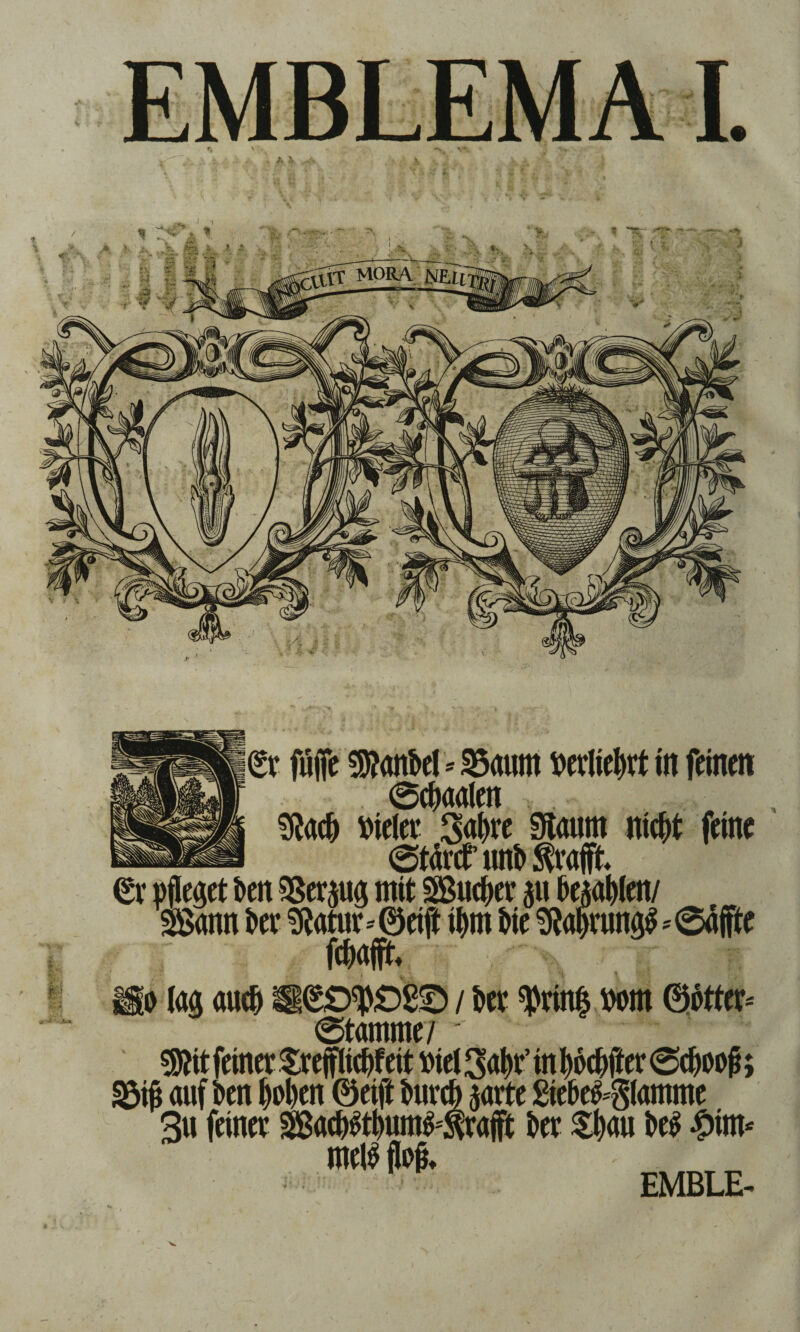 EMBLEMA I.
NOCUIT MORA NEUTRI
DEr süsse Mandel-Baum verliehrt in seinen
Schaalen
Nach vieler Jahre Raum nicht seine
Stärck und Krafft.
Er pfleget den Verzug mit Wucher zu bezahlen/
Wann der Natur-Geist ihm die Nahrungs-Säffte
schafft.
So lag auch LEOPOLD / der Printz vom Götter-
Stamme/
Mit seiner Trefflichkeit viel Jahr' in höchster Schooß;
Biß auf den hohen Geist durch zarte Liebes-Flamme
Zu seiner Wachsthums-Krafft der Thau des Him-
mels floß.
EMBLE-